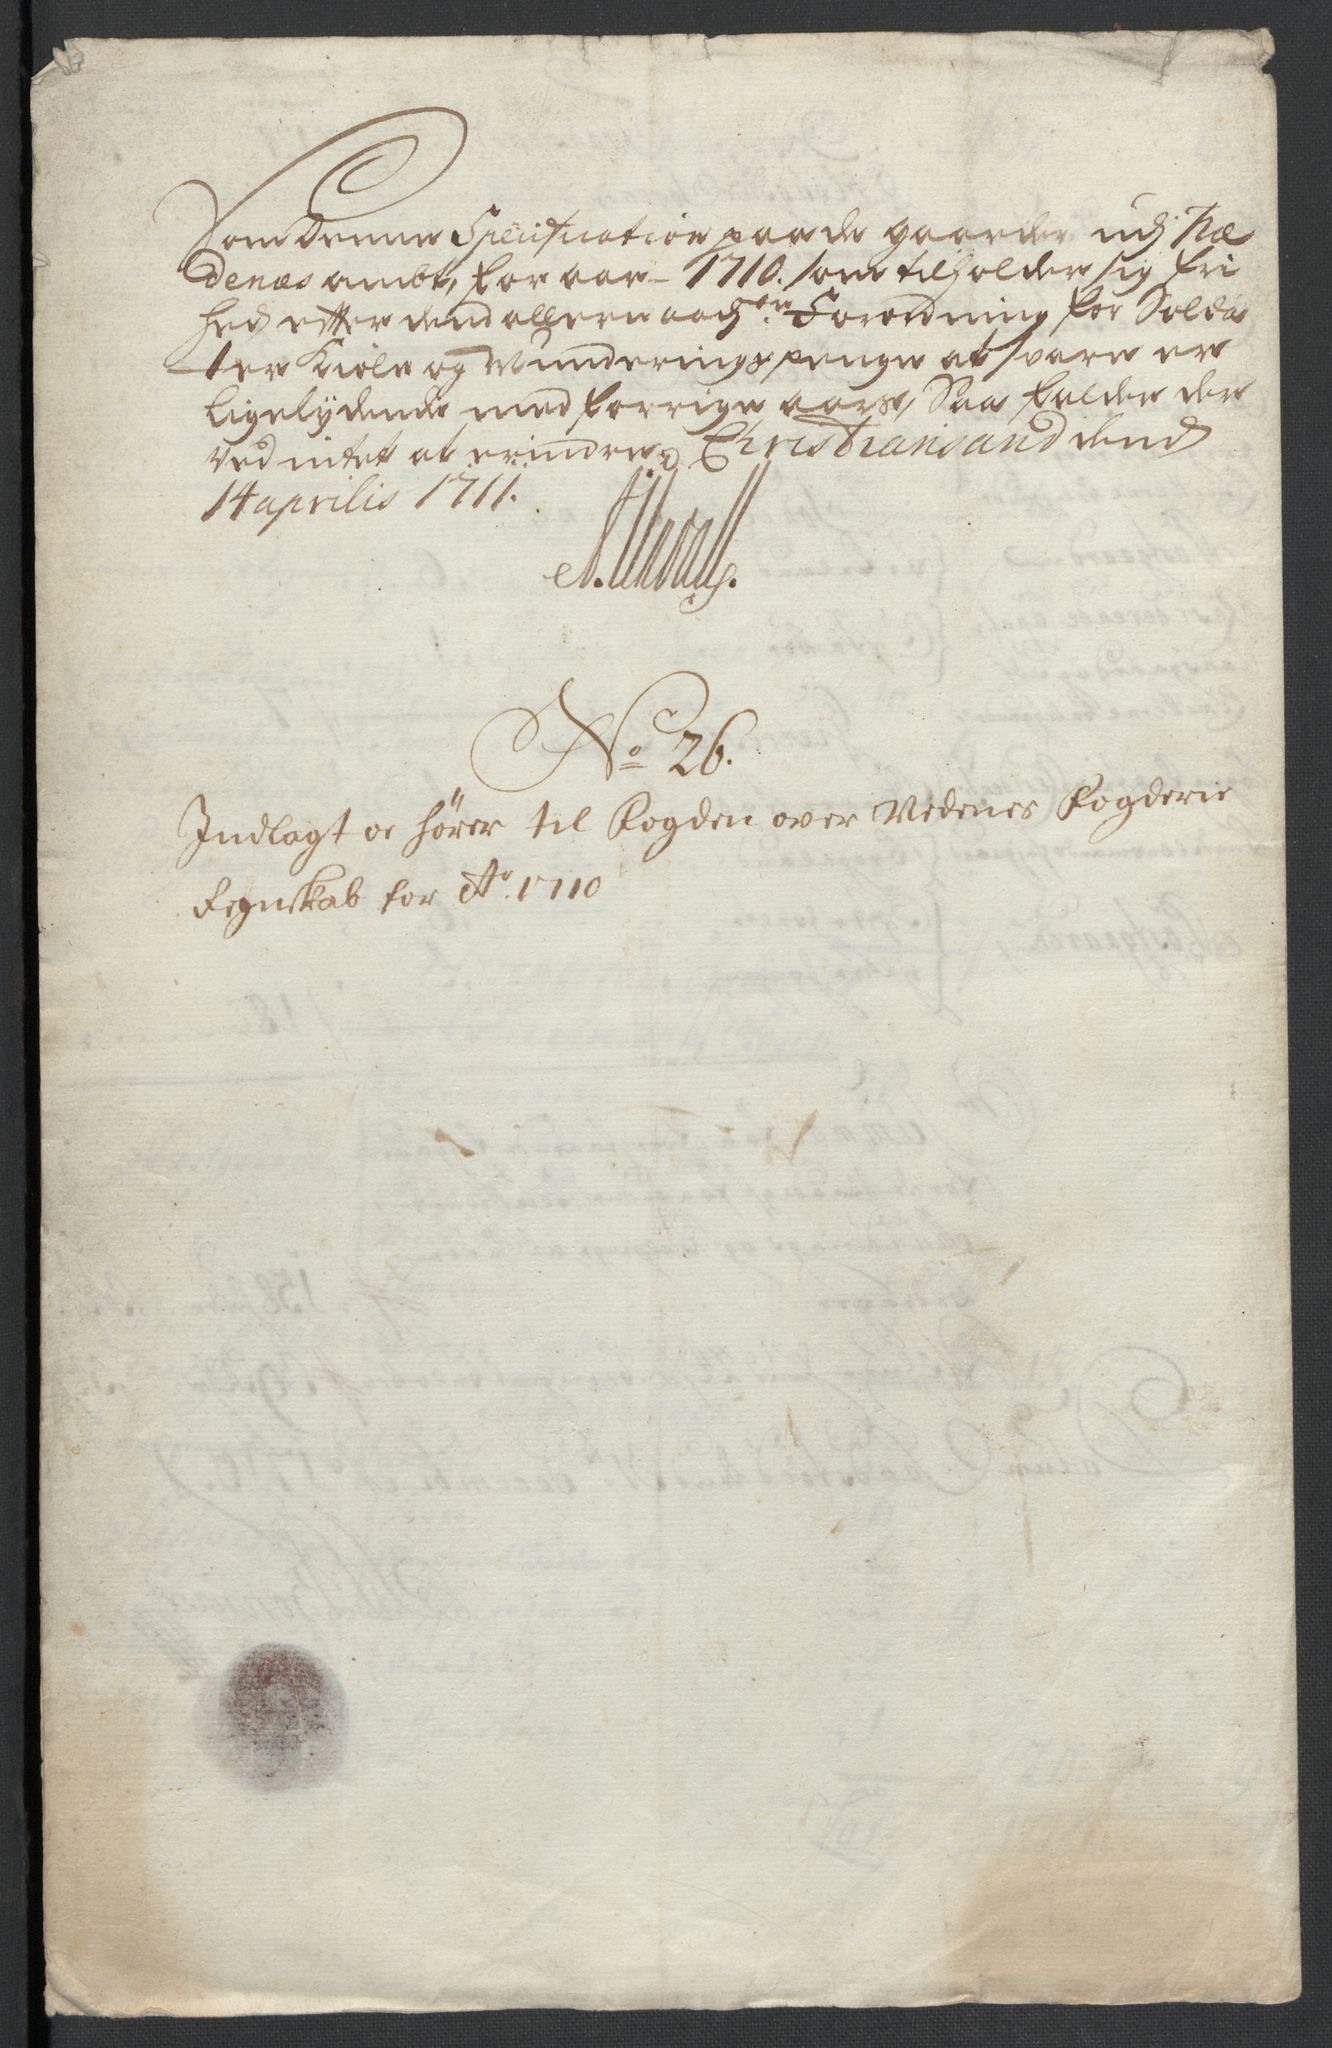 Som Denne Specification paa de gaarder udj Næ
denæs ambt, for aar 1710. som tilholder sig fri
hed efter dend allernaadste Forordning for Solda
ter Kiole og Munderings penge at svare er
ligelydende med forrige aars, Saa falder der
ved intet at erindre, Christiansand dend
14 aprilis 1711.
No 26.
Indlagt oc hører til Fogden over Nedenes Fogderie
Regnskab for Ao. 1710